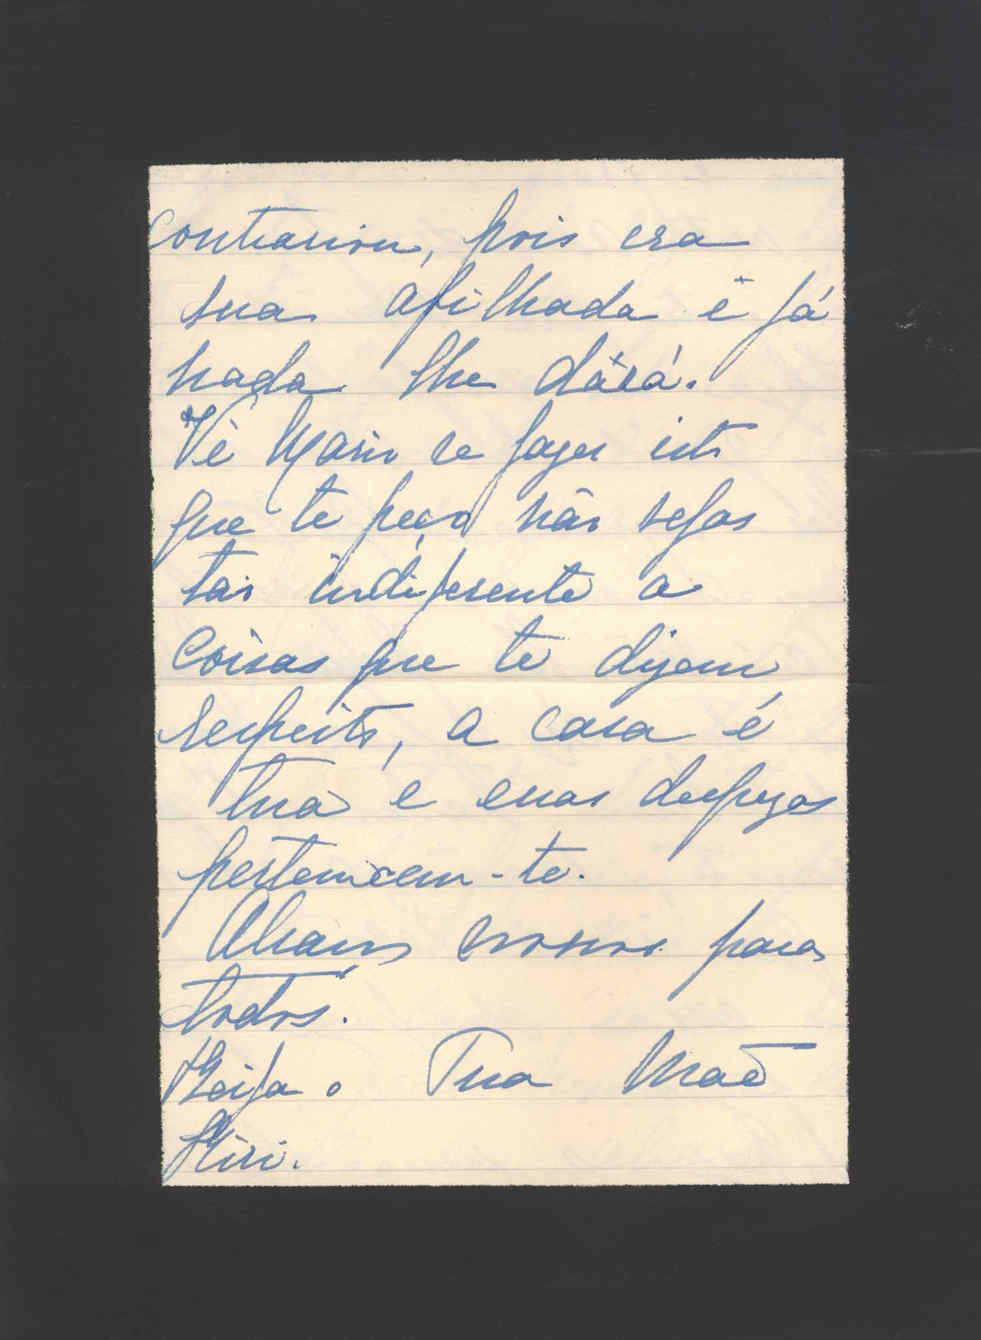 contrariou, pois era
sua afilhada e já
nada lhe dará.
Vê Mario se fazes isto
que te peço não sejas
tão indiferente a
coisas que te dizem
respeito, a casa é
tua e suas despezas
pertencem-te.
para
todos.
Beija o Tua Mãe